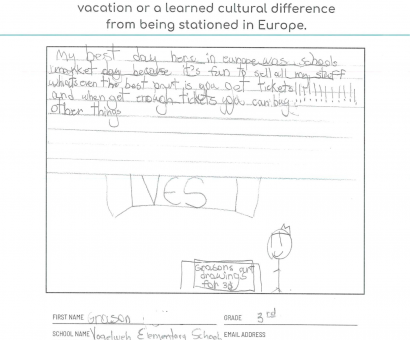 vacation or a learned cultural difference
from being stationed in Europe.
My best day here in europe was schools
market day because it's fun to sell all my stuff
whats even the best part is you get tickets!!!!!!!!!!!!
and when get enough tickets you can buy
other things
VES
Grasons art
drawings
for 3$
FIRST NAME Grason
GRADE 3rd
SCHOOL NAME Vogelweh Elementary School EMAIL ADDRESS